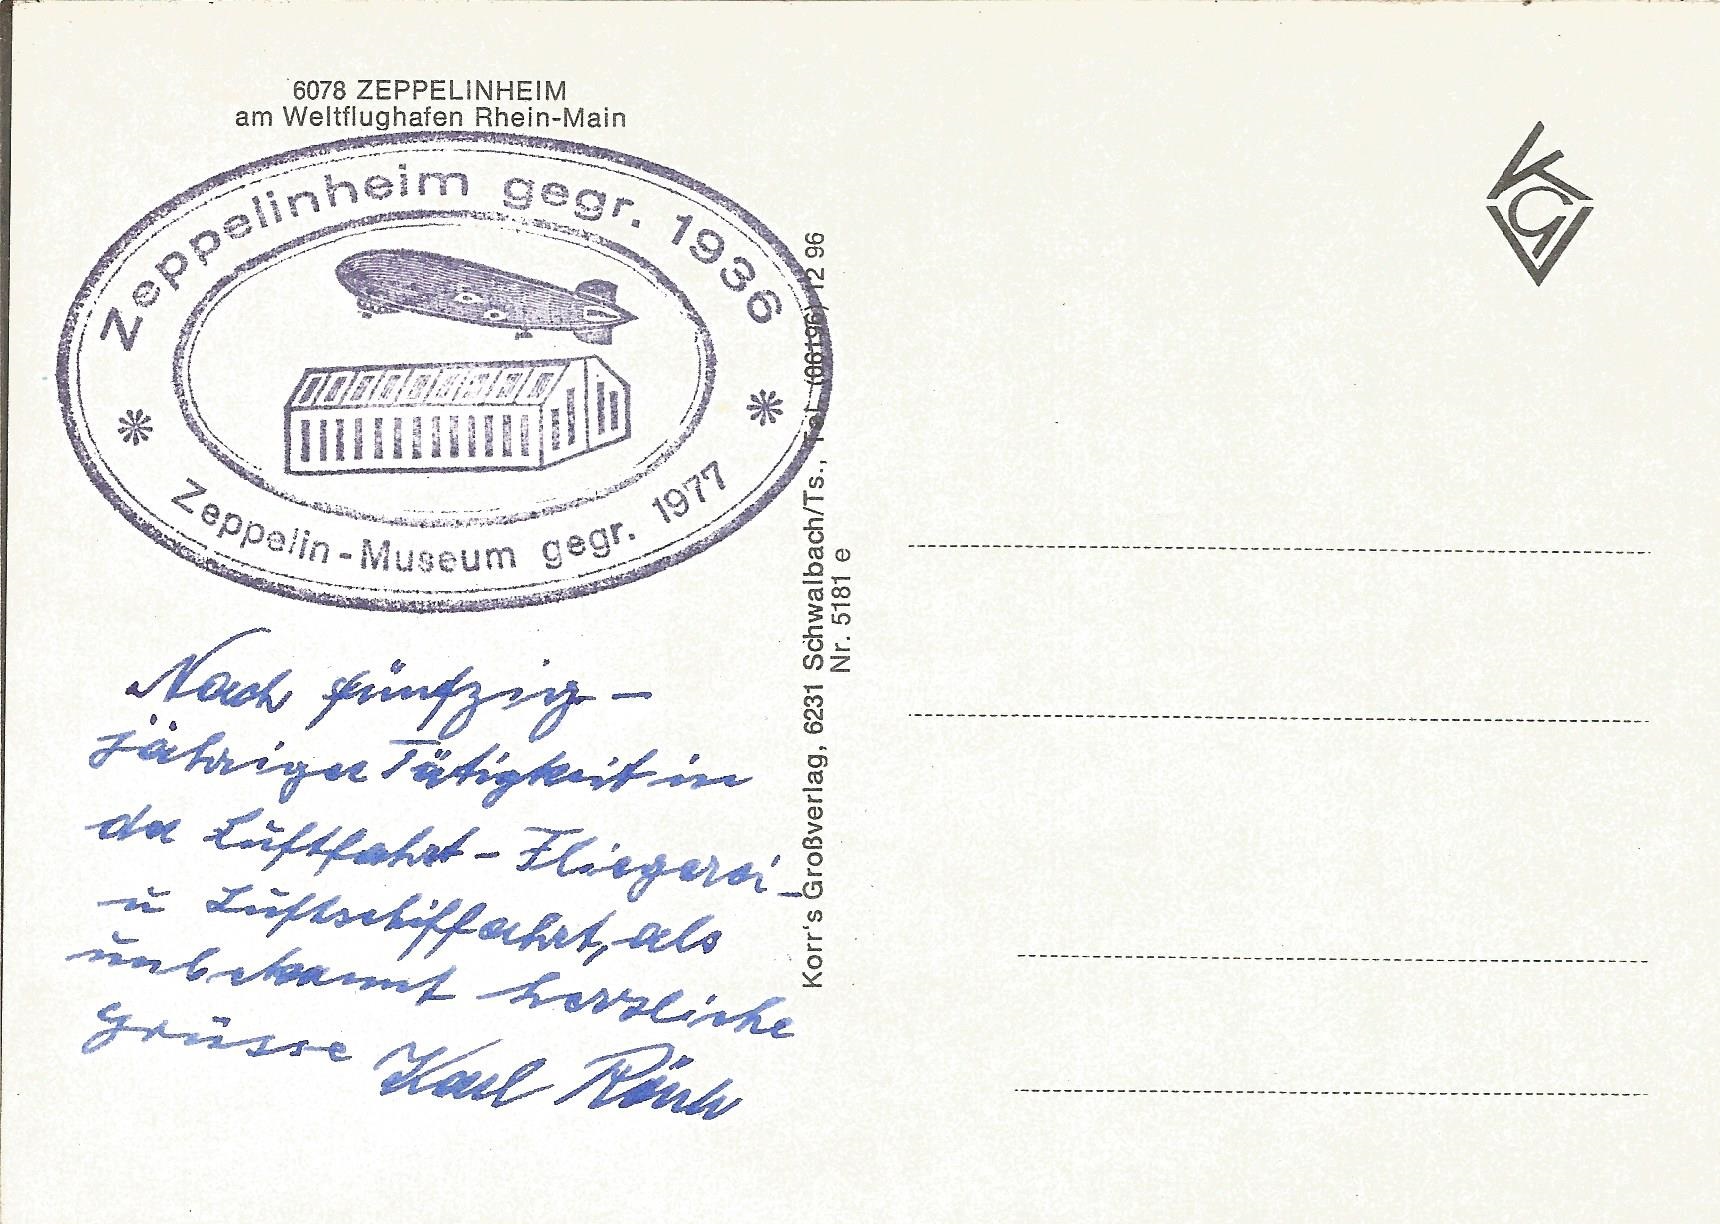 6078 ZEPPELINHEIM
am Weltflughafen Rhein-Main
Zeppelinheim gegr. 1936
Zeppelin-Museum gegr. 1977
Nach fünfzig-
jähriger Tätigkeit in
der Luftfahrt - Fliegerei -
u Luftschiffahrt, als
unbekannt herzliche
Grüsse Karl
Korr's Großverlag, 6231 Schwalbach/Ts., Tel. (06196) 12 96
Nr. 5181 e
KG